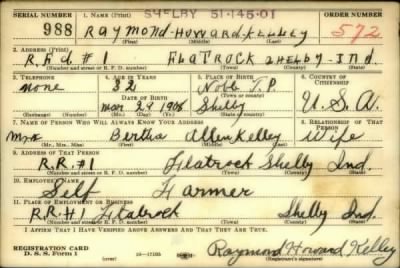 SERIAL NUMBER 1. NAME (Print) SHELBY 51-145-01 ORDER NUMBER
988 RAYMOND-HOWARD-KELLEY 572
(First) (Middle) (Last)
2. ADDRESS (Print)
R.F.d. #1 FLATROCK SHELBY-Ind.
(Number and street or R. F. D. number) (Town) (County) (State)
3. TELEPHONE 4. AGE IN YEARS 5. PLACE OF BIRTH 6. COUNTRY OF CITIZENSHIP
none 32 Noble T.P.
DATE OF BIRTH
Mar 29 1908 Shelby U.S.A.
(Exchange) (Number) (Mo.) (Day) (Yr.) (State or country)
7. NAME OF PERSON WHO WILL ALWAYS KNOW YOUR ADDRESS 8. RELATIONSHIP OF THAT PERSON
Mrs Bertha Allen Kelley Wife
(Mr., Mrs., Miss) (First) (Middle) (Last)
9. ADDRESS OF THAT PERSON
R.R.#1 Flatrock Shelby Ind.
(Number and street or R. F. D. number) (Town) (County) (State)
10. EMPLOYER'S NAME
Self Farmer
11. PLACE OF EMPLOYMENT OR BUSINESS
R.R.#1 Flatrock Shelby Ind.
(Number and street or R. F. D. number) (Town) (County) (State)
I AFFIRM THAT I HAVE VERIFIED ABOVE ANSWERS AND THAT THEY ARE TRUE.
REGISTRATION CARD
D. S. S. Form 1 (over) Raymond Howard Kelley
(Registrant's signature)